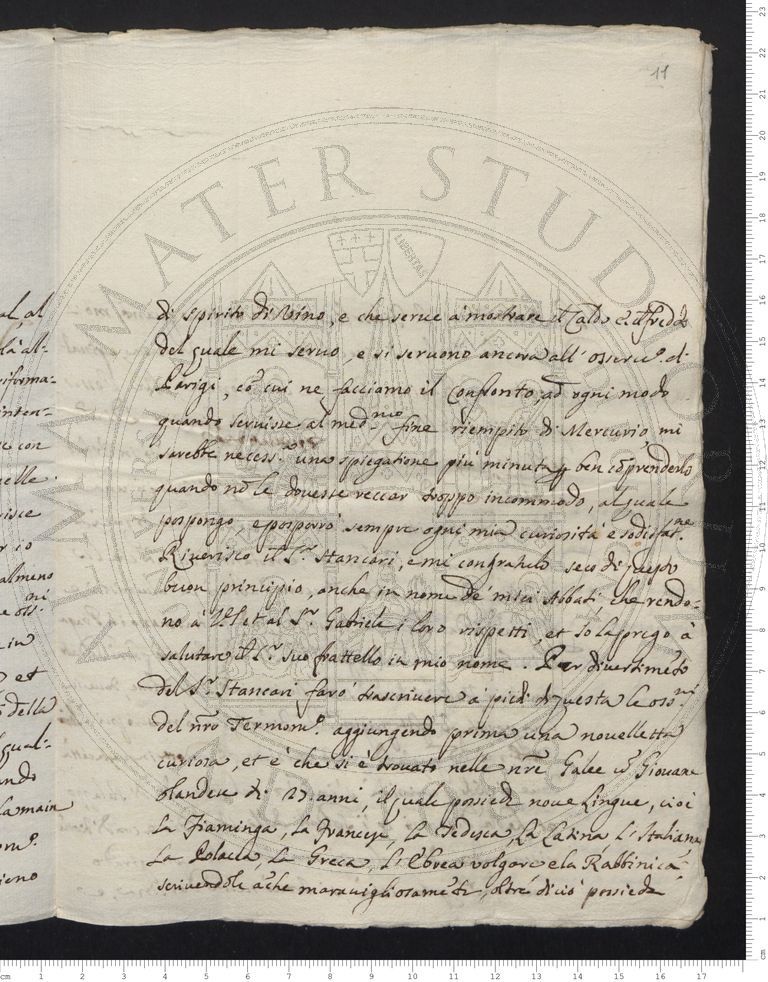 11
di spirito di Vino, e che serue à mostrare il Caldo e il freddo
del quale mi seruo, e si seruono ancora all' osseru.º di
Parigi, cõ cui ne facciamo il Confronto, ad ogni modo
quando seruisse al med.mo fine riempito di Mercurio, mi
sarebbe necess.ª una spiegatione più minuta p ben cõprenderlo
quando nõ le douesse reccar troppo incommodo, al quale
pospongo, e posporrò sempre ogni mia curiosità e sodisfat.ne
Riuerisco il S.r Stancari, e mi congratulo seco di questo
buon principio, anche in nome de' miei Abbati, che rendo-
no à et al S.r Gabriele i loro rispetti, et io la prego à
salutare il S.r suo frattello in mio nome. Per diuertimẽto
del S.r Stancari farò trascriuere à piedi di questa le oss.ni
del nr̃o Termom.º aggiungendo prima una nouelletta
curiosa, et è che si è trouato nelle nr̃e Galee ũ Giouane
olandese di 27. anni, il quale possiede noue lingue, cioè
La Fiaminga, la Francese, la Tedesca, La Latina, L'Italiana
La Polacca, La Greca, L'Ebrea volgare e la Rabbinica
scriuendole ãche marauigliosamẽte, oltre di ciò possiede
al, al
là al-
riforma-
inten-
con
nelle
risce
io
almeno
in
et
della
qual-
ando
la main
ieno
ALMA MATER STUDIORUM
LIBERTAS
cm 1 2 3 4 5 6 7 8 9 10 11 12 13 14 15 16 17
cm 1 2 3 4 5 6 7 8 9 10 11 12 13 14 15 16 17 18 19 20 21 22 23